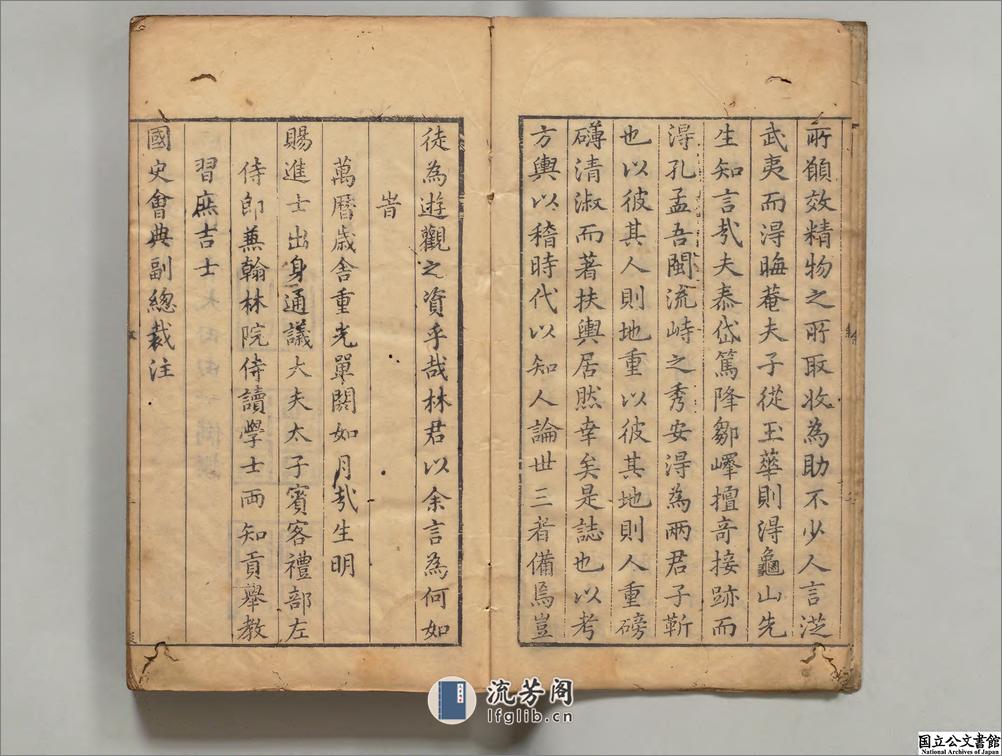 所願效精物之所取收為助不少人言涖
武夷而得晦菴夫子從玉華則得龜山先
生知言哉夫泰岱篤降鄒嶧擅竒接跡而
淂孔孟吾閩流峙之秀安淂為兩君子靳
也以彼其人則地重以彼其地則人重磅
礴清淑而著扶輿居然幸矣是誌也以考
方輿以稽時代以知人論世三者備焉豈
徒為遊觀之資乎哉林君以余言為何如
旹
萬曆歳舎重光單閼如月哉生明
賜進士出身通議大夫太子賓客禮部左
侍郎兼翰林院侍讀學士兩知貢舉教
習庶吉士
國史會典副總裁注
流芳阁
lfglib.cn
国立公文書館
National Archives of Japan